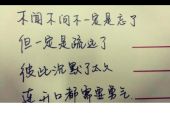 不闻不问不一定是忘了
但一定是疏远了
彼此沉默了太久
连开口都需要勇气